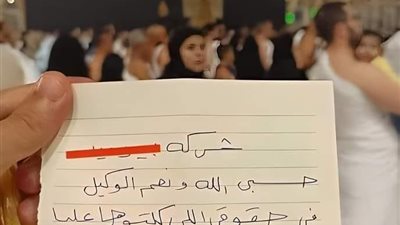 شركه
حسبي الله ونعم الوكيل
في حقوقي اللي كلتوها عليا